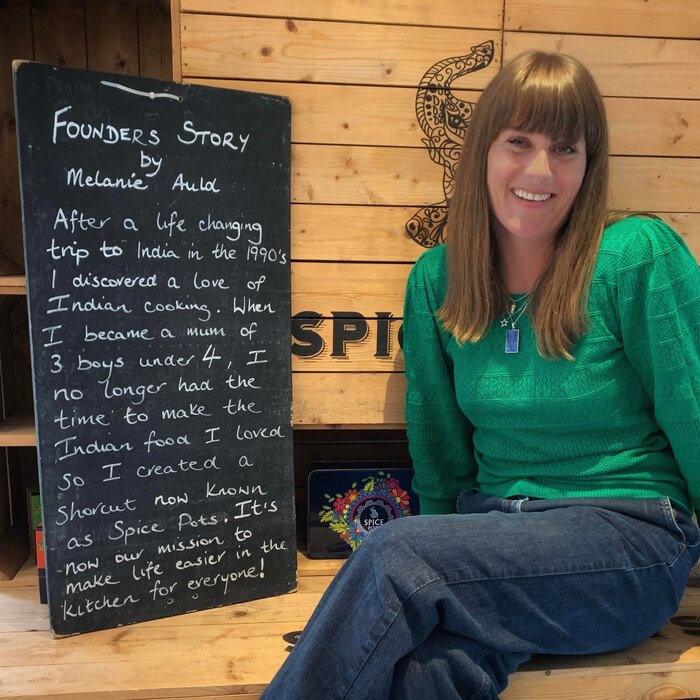 FOUNDERS STORY
by
Melanie Auld
After a life changing
trip to India in the 1990's
I discovered a love of
Indian cooking. When
I became a mum of
3 boys under 4, I
no longer had the
time to make the
Indian food I loved
so I created a
Shorcut now known
as Spice Pots. It's
now our mission to
make life easier in the
kitchen for everyone!
SPIC
SPICE